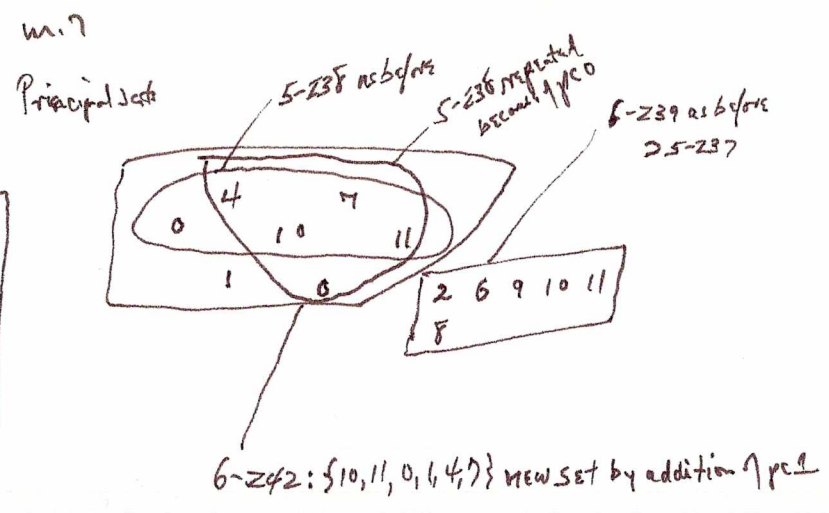 m.7
Principal sets
5-Z38 as before
5-Z38 repeated
because of pc0
6-Z39 as before
⊃5-Z37
4 7
0 10 11
1 0
2 6 9 10 11
8
6-Z42: {10,11,0,1,4,7} new set by addition of pc1